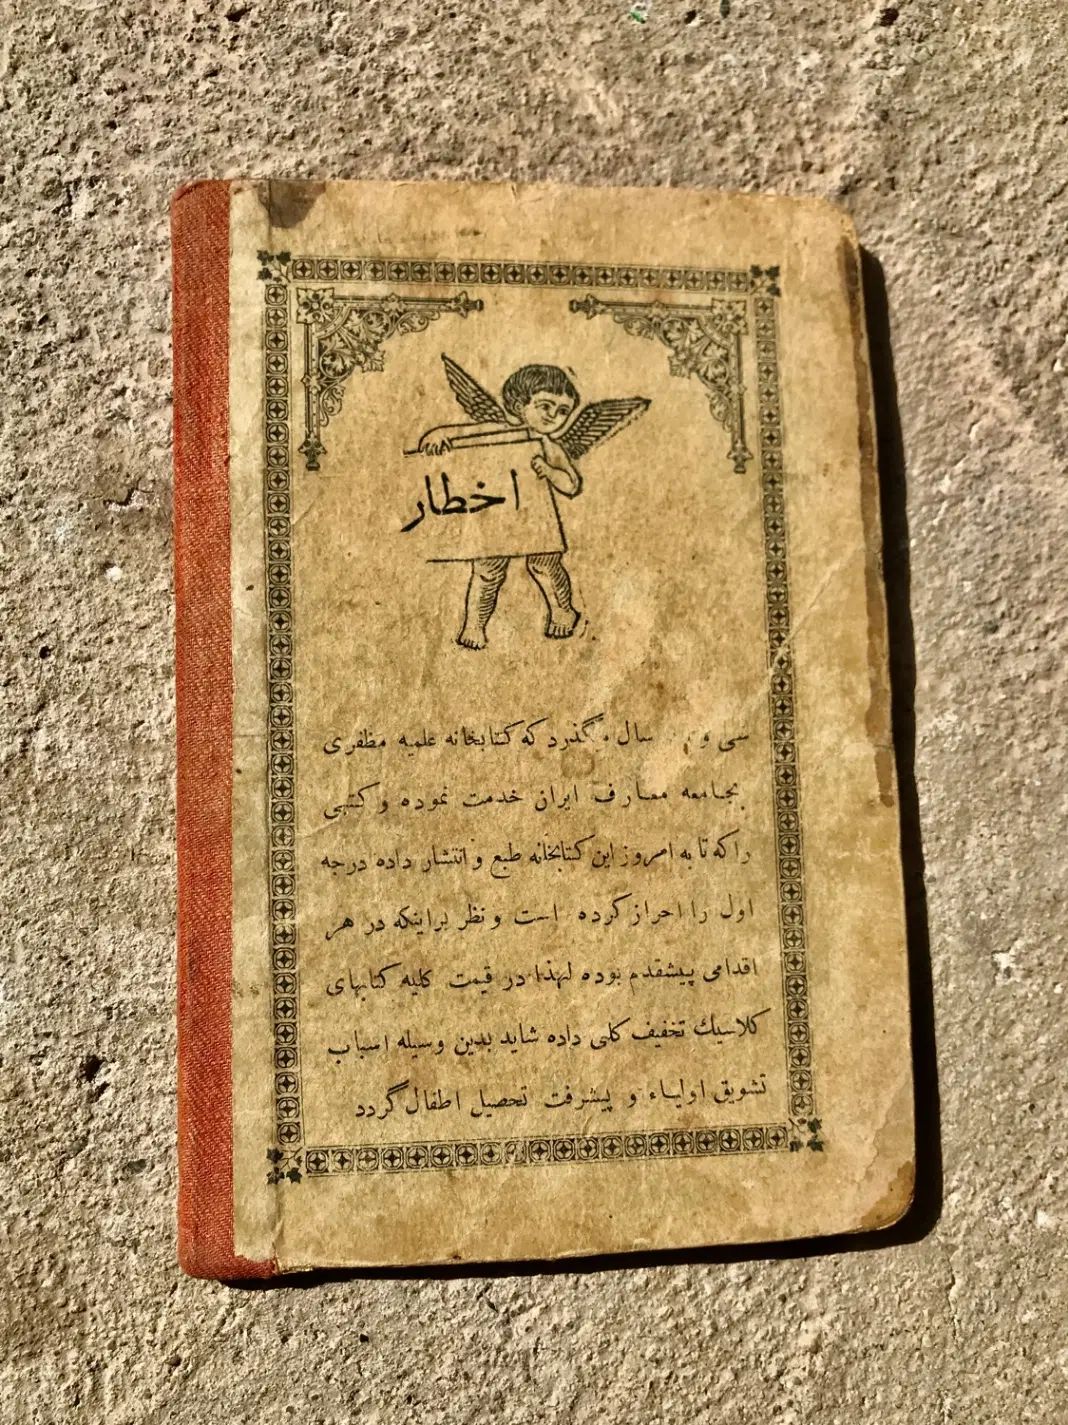 اخطار
سی و سال میگذرد که کتابخانه علمیه مظفری
بجامعه معارف ایران خدمت نموده و کتبی
را که تا به امروز این کتابخانه طبع و انتشار داده درجه
اول را احراز کرده است و نظر براینکه در هر
اقدامی پیشقدم بوده لهذا در قیمت کلیه کتابهای
کلاسیك تخفیف کلی داده شاید بدین وسیله اسباب
تشویق اولیاء و پیشرفت تحصیل اطفال گردد